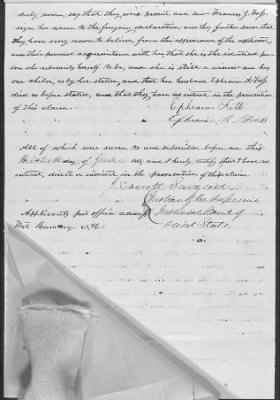 duly sworn, say that they were present and saw Frances J. Foss
sign her name to the foregoing declaration, and they further swear that
they have every reason to believe, from the appearance of the applicant,
and their personal acquaintance with her, that she is the identical per-
son she represents herself to be, and she is still a widow and has
one child, as by her stated, and that her husband Ephraim A. Foss
died as before stated, and that they have no interest in the prosecution
of this claim.
Ephraim
Ephraim K. Foss
All of which was sworn to and subscribed before me this
day of June and I hereby certify that I have no
interest, direct or indirect in the prosecution of this claim.
Everett Sargent
Justice of the Supreme
Judicial Court of
said State.
Applicants post office address